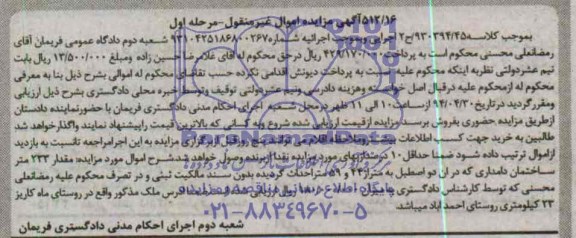 ۵۱۲/۱۶ آگهی مزایده اموال غیرمنقول-مرحله اول
بموجب کلاسه ۹۳۰۳۹۴/۴۵/ح۲ اجرایی وبموجب اجرائیه شماره ۹۳۱۰۴۲۵۱۸۶۸۰۰۲۶۷ شعبه دوم دادگاه عمومی فریمان آقای
رمضانعلی محسنی محکوم است به پرداخت ریال درحق محکوم له آقای غلامرضا حسین زاده ومبلغ ۱۳/۵۰۰/۰۰۰ ریال بابت
نیم عشردولتی نظربه اینکه محکوم علیه نسبت به پرداخت دیونش اقدامی نکرده حسب تقاضای محکوم له اموالی بشرح ذیل بنا به معرفی
محکوم له ازمحکوم علیه درقبال اصل خواسته وهزینه دادرسی ونیم عشردولتی توقیف وتوسط خبره محلی دادگستری بشرح ذیل ارزیابی
ومقررگردید درتاریخ ۹۴/۰۴/۳۰ ازساعت ۱۰ الی ۱۱ ظهر درمحل شعبه اجرای احکام مدنی دادگستری فریمان با حضورنماینده دادستان
ازطریق مزایده حضوری بفروش برسد مزایده ازقیمت ارزیابی شده شروع وبه کسانی که بالاترین قیمت راپیشنهاد نمایند واگذارخواهد شد
طالبین به خرید جهت کسب اطلاعات می توانند پنج روزقبل ازبرگزاری مزایده به این اجرامراجعه تانسبت به بازدید
ازاموال ترتیب داده شود ضمنا حداقل ۱۰ درصد ازبهای مورد مزایده نقدا ازبرنده وصول خواهد شد شرح اموال مورد مزایده: مقدار ۲۳۳ متر
ساختمان دامداری که در آن دو اصطبل به متراژ ۴۴ و ۵۹ متر احداث گردیده بدون سند مالکیت ثبتی و در تصرف محکوم علیه رمضانعلی
محسنی که توسط کارشناس دادگستری ریال ارزیابی شده است آدرس ملک مذکور واقع در روستای ماه کاریز
۲۳ کیلومتری روستای احمد آباد میباشد
شعبه دوم اجرای احکام مدنی دادگستری فریمان
ParsNamadData
پایگاه اطلاع رسانی مناقصه و مزایده
۰۲۱-۸۸۳۴۹۶۷۰-۵